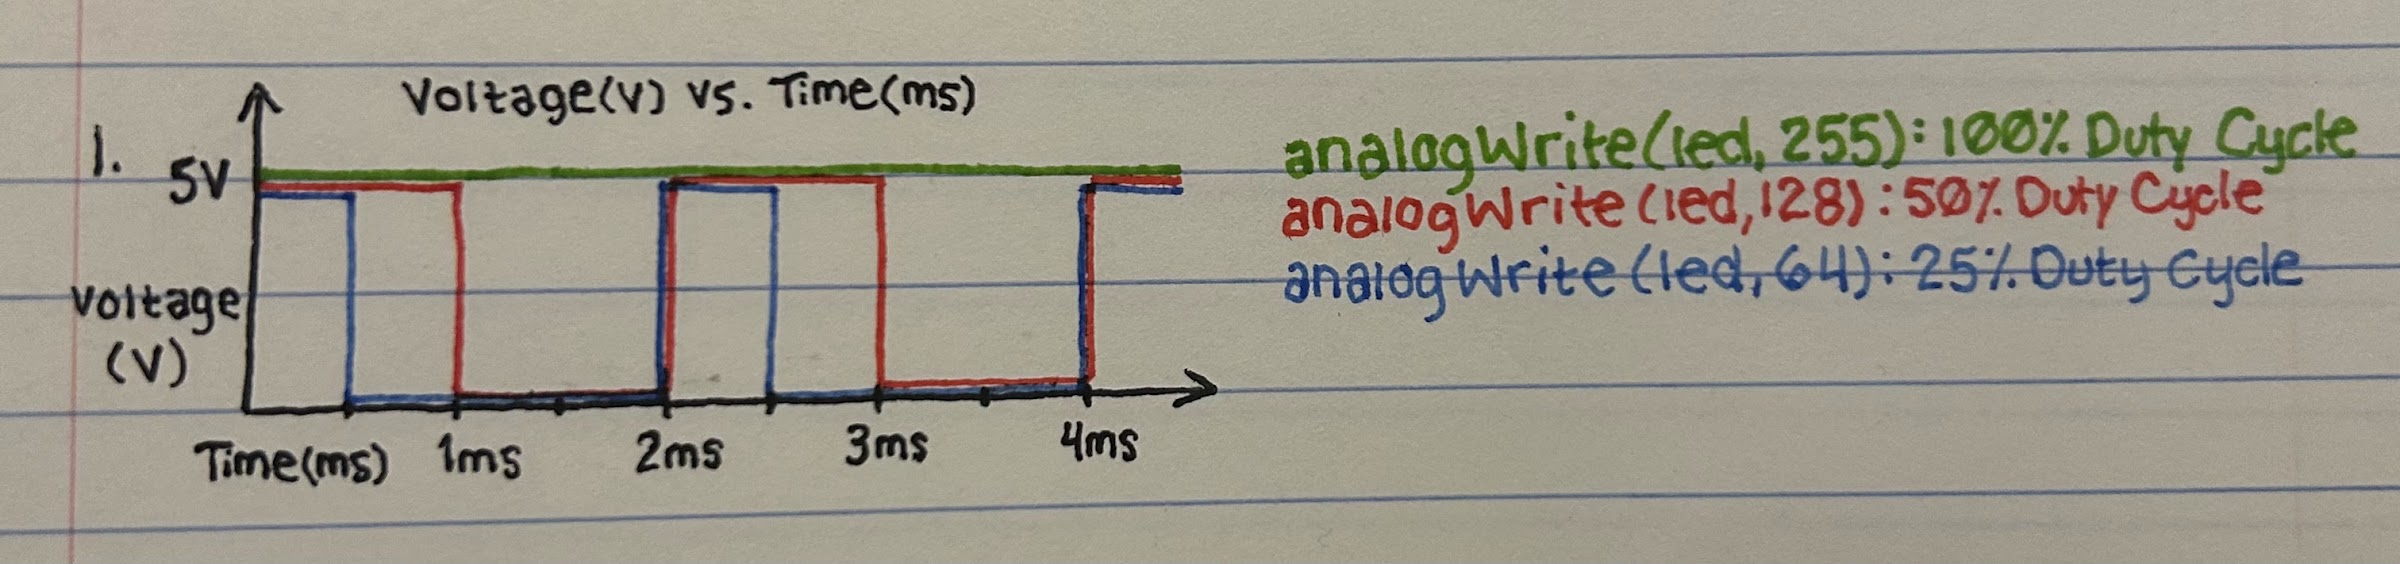 Voltage(V) vs. Time(ms)
1.
5V
Voltage
(V)
Time(ms) 1ms 2ms 3ms 4ms
analogWrite(led, 255): 100% Duty Cycle
analogWrite(led, 128): 50% Duty Cycle
analogWrite(led, 64): 25% Duty Cycle